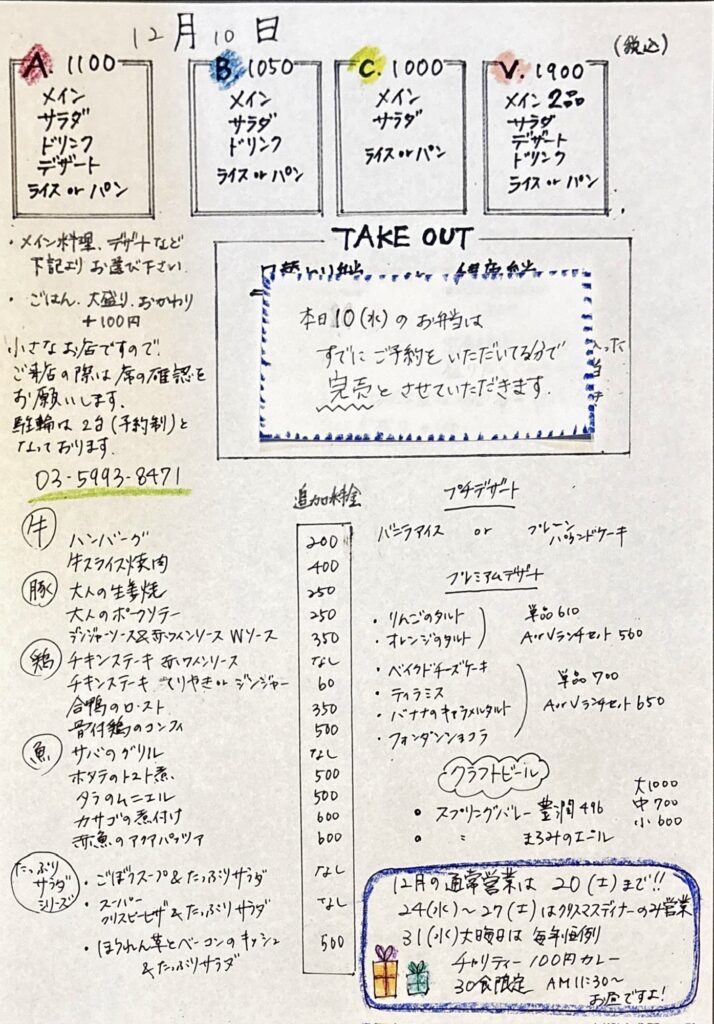 12月10日
(税込)
A. 1100
メイン
サラダ
ドリンク
デザート
ライス or パン
B. 1050
メイン
サラダ
ドリンク
ライス or パン
C. 1000
メイン
サラダ
ライス or パン
V. 1900
メイン 2品
サラダ
デザート
ドリンク
ライス or パン
・メイン料理、デザートなど
下記よりお選び下さい.
・ごはん、大盛り、おかわり
+100円
小さなお店ですので、
ご来店の際は席の確認を
お願いします.
駐輪は2台(予約制)と
なっております.
03-5993-8471
TAKE OUT
本日10(水)のお弁当は
すでにご予約をいただいてる分で
完売とさせていただきます.
追加料金
牛
ハンバーグ 200
牛スライス焼肉 400
豚
大人の生姜焼 250
大人のポークソテー 250
ジンジャーソース&赤ワインソース Wソース 350
鶏
チキンステーキ 赤ワインソース なし
チキンステーキ てりやき or ジンジャー 60
合鴨のロースト 350
骨付鶏のコンフィ 500
魚
サバのグリル なし
ホタテのトマト煮 500
タラのムニエル 500
カサゴの煮付け 600
赤魚のアクアパッツァ 600
たっぷり
サラダ
シリーズ
・ごぼうスープ&たっぷりサラダ なし
・スーパー
クリスピーピザ&たっぷりサラダ なし
・ほうれん草とベーコンのキッシュ 500
&たっぷりサラダ
プチデザート
バニラアイス or プレーン
パウンドケーキ
プレミアムデザート
・りんごのタルト
・オレンジのタルト
単品610
A or Vランチセット 560
・ベイクドチーズケーキ
・ティラミス
・バナナのキャラメルタルト
・フォンダンショコラ
単品 700
A or Vランチセット 650
クラフトビール
・スプリングバレー 豊潤 496
・ 〃 まろみのエール
大1000
中 700
小 600
12月の通常営業は 20(土)まで!!
24(水)~27(土)はクリスマスディナーのみ営業
31(水)大晦日は 毎年恒例
チャリティー 100円カレー
30食限定 AM11:30~
お昼ですよ!